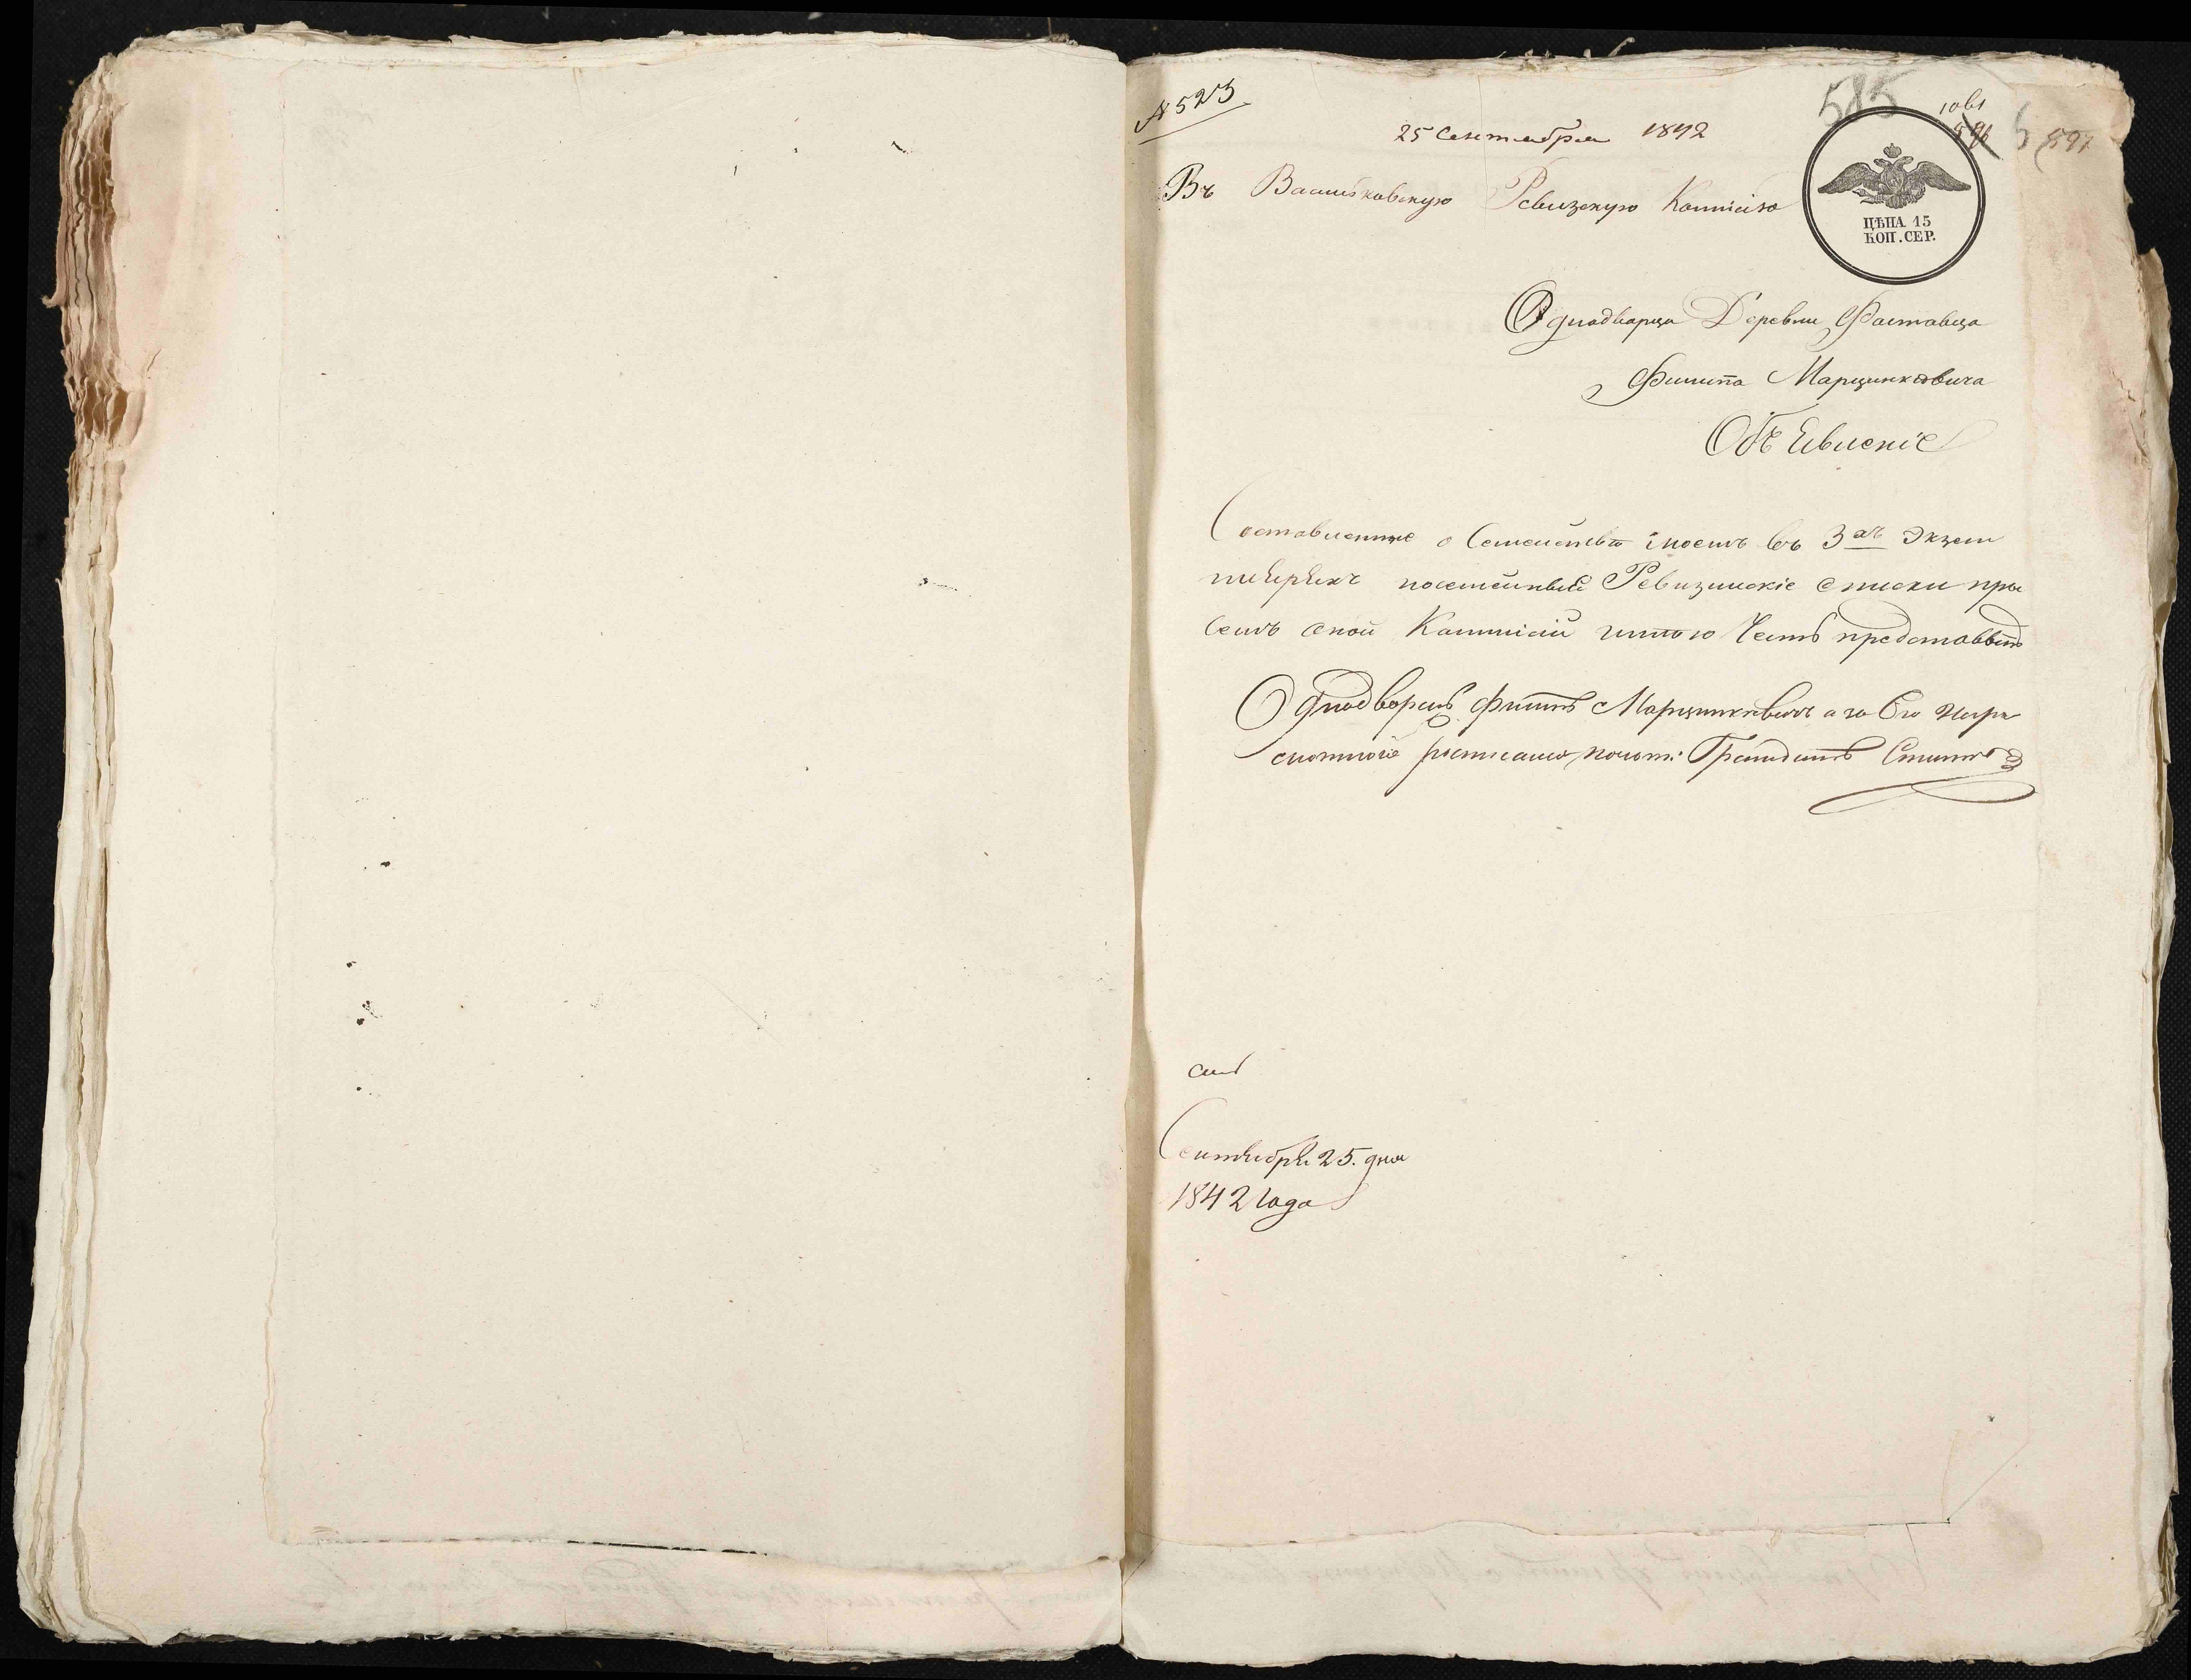 № 523
585
1061
596
597
25 Сентября 1842
Въ Васильковскую Ревизскую Коммісію
ЦѢНА 15
КОП. СЕР.
Однодворца Деревни Фастовца
Филипа Марцинковича
Объявленіе
Составленные о Семействѣ моемъ въ 3хъ Экзем
плярахъ посемейные Ревизскіе списки при
семъ оной Коммісіи имѣю Честь представить
Однодворецъ Филипъ Марцинкевичъ а за Его негра
мотного росписался почот: Гражданинъ
Сентября 25. дня
1842 года